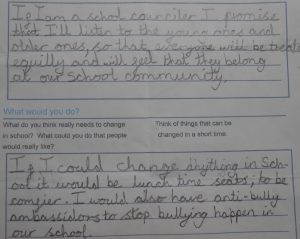 If I am a school counciler I promise
that I'll listen to the young ones and
older ones, so that everyone will be treated
equilly and will feel that they belong
at our school community.
What would you do?
What do you think really needs to change
in school? What could you do that people
would really like?
Think of things that can be
changed in a short time.
If I could change anything in Sch-
ool it would be lunch time seats; to be
comfier. I would also have anti-bully
ambassidors to stop bullying happen in
our school.